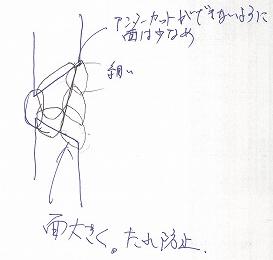 アンダーカットができないように
面は少なめ
細い
面大きく。たれ防止.